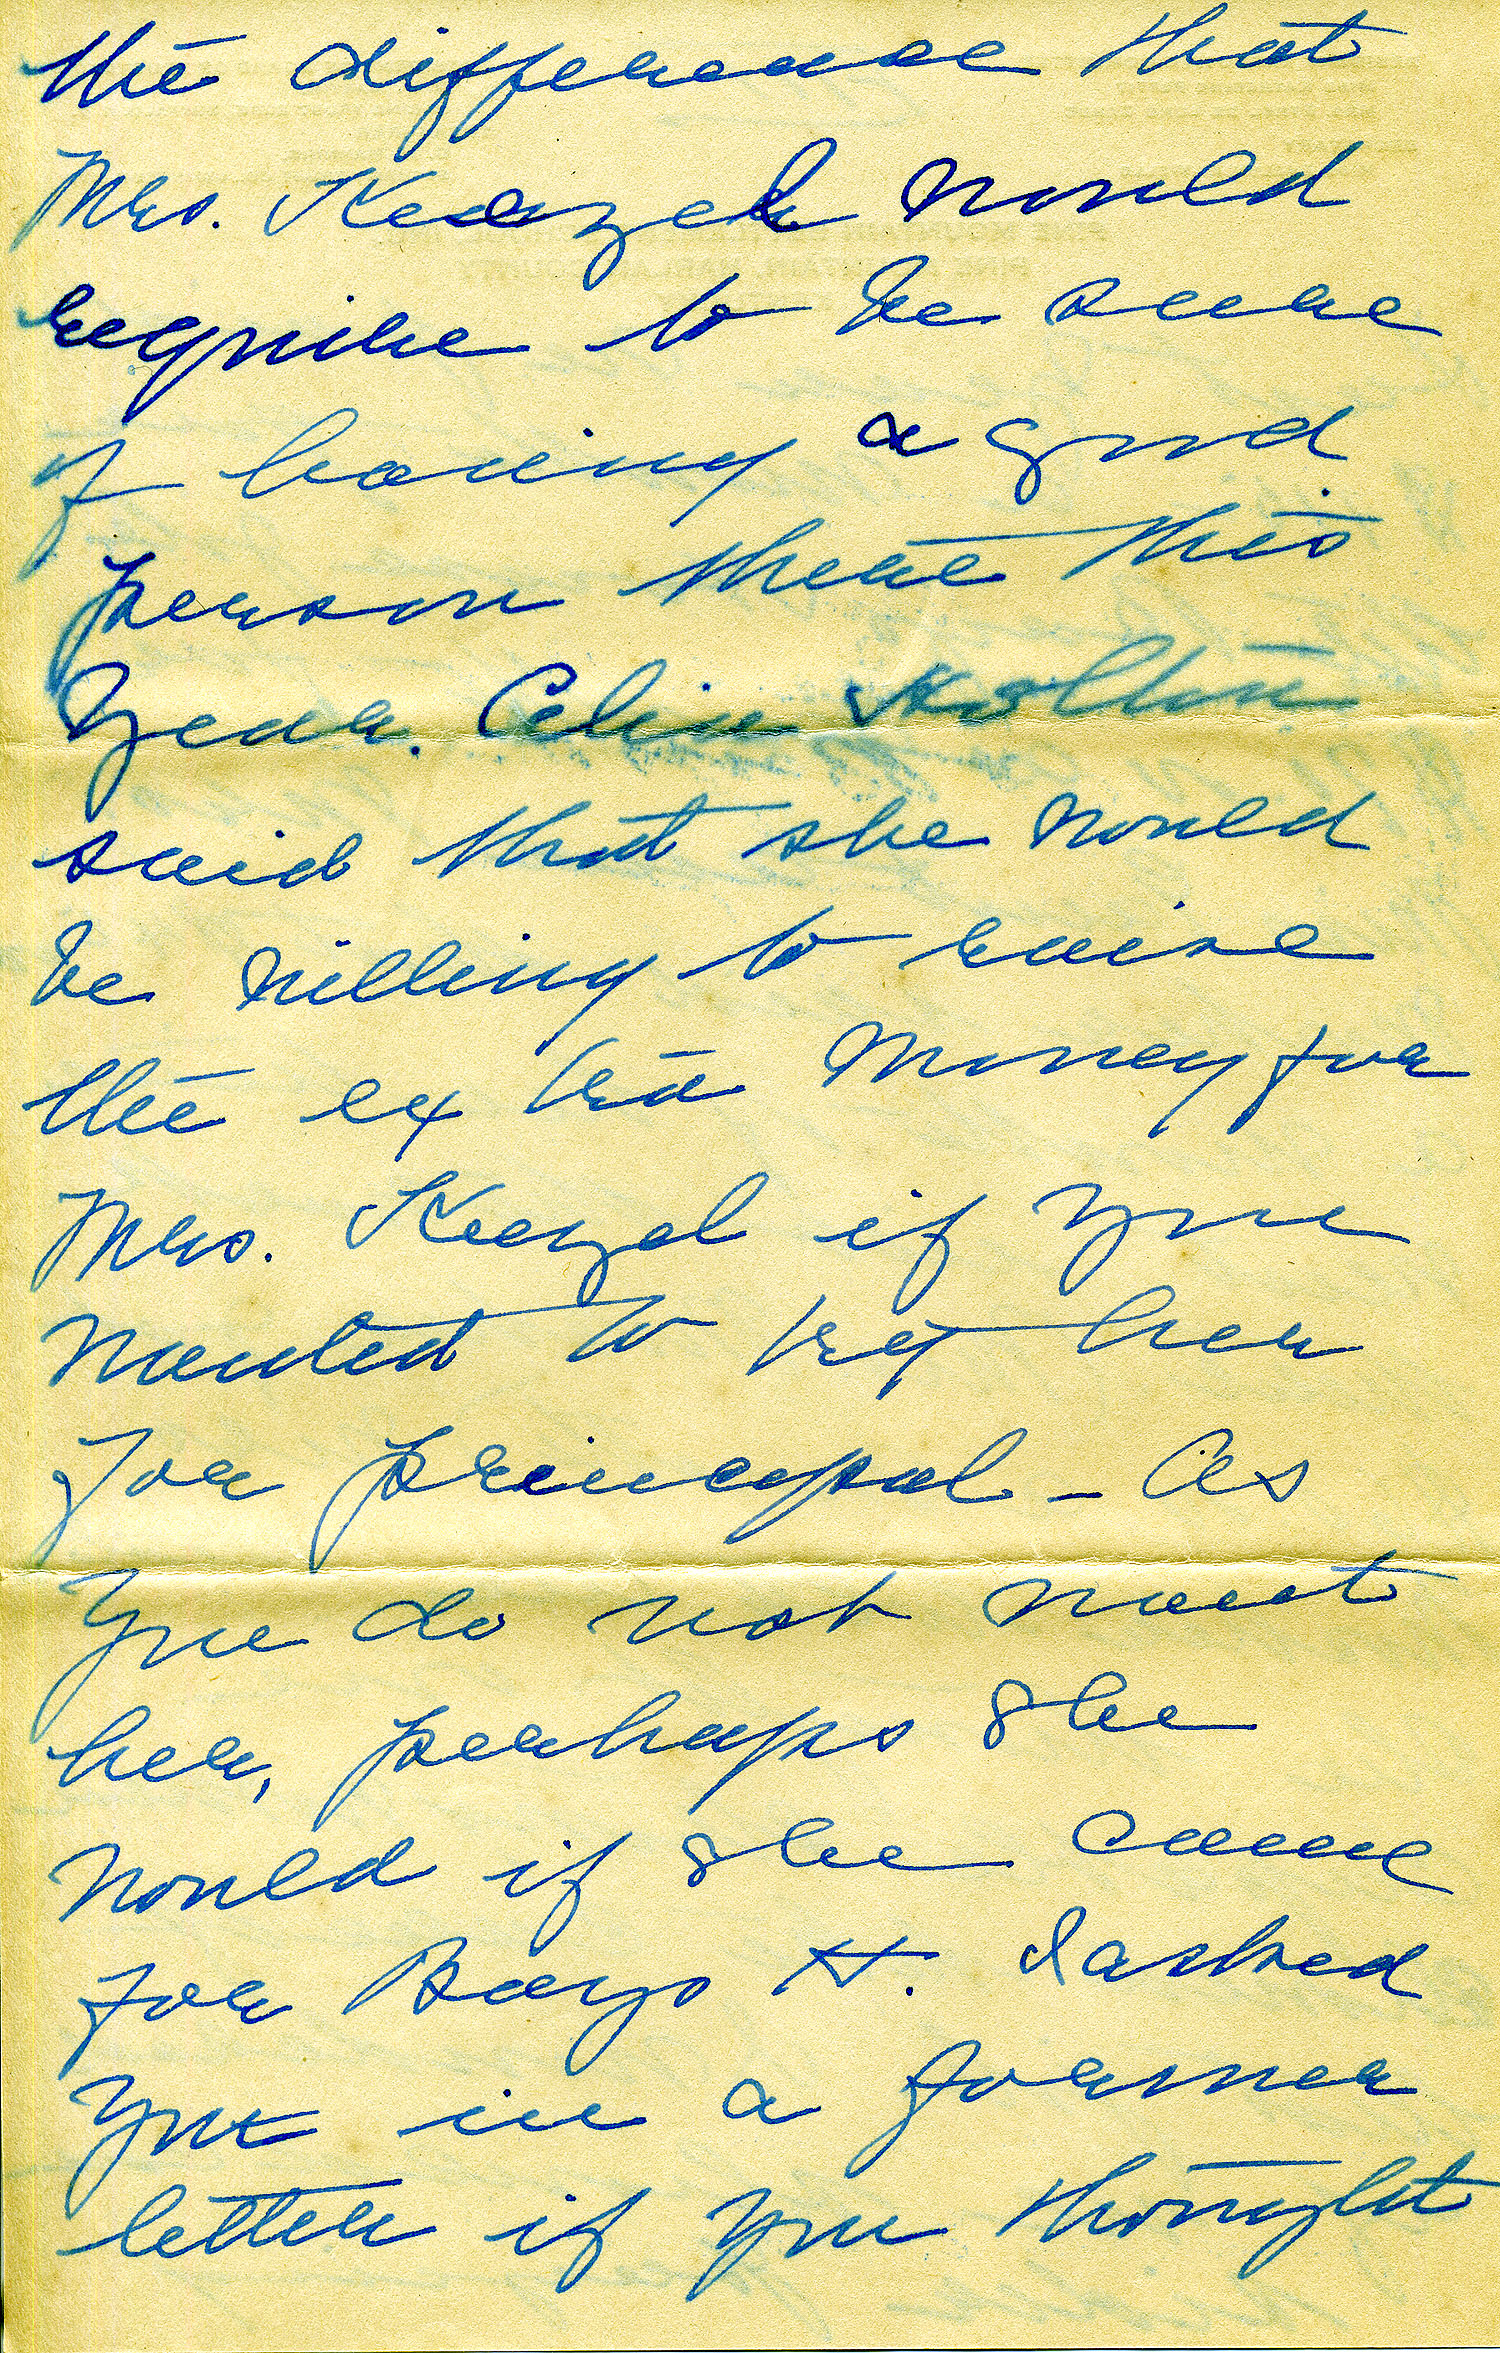 the difference that
Mrs. Keezel would
require to be sure
of having a good
person there this
year. Celia
said that she would
be willing to raise
the extra money for
Mrs. Keezel if you
wanted to try her
for principal - As
you do not want
her, perhaps she
would if she came
for Boys H. I asked
you in a former
letter if you thought